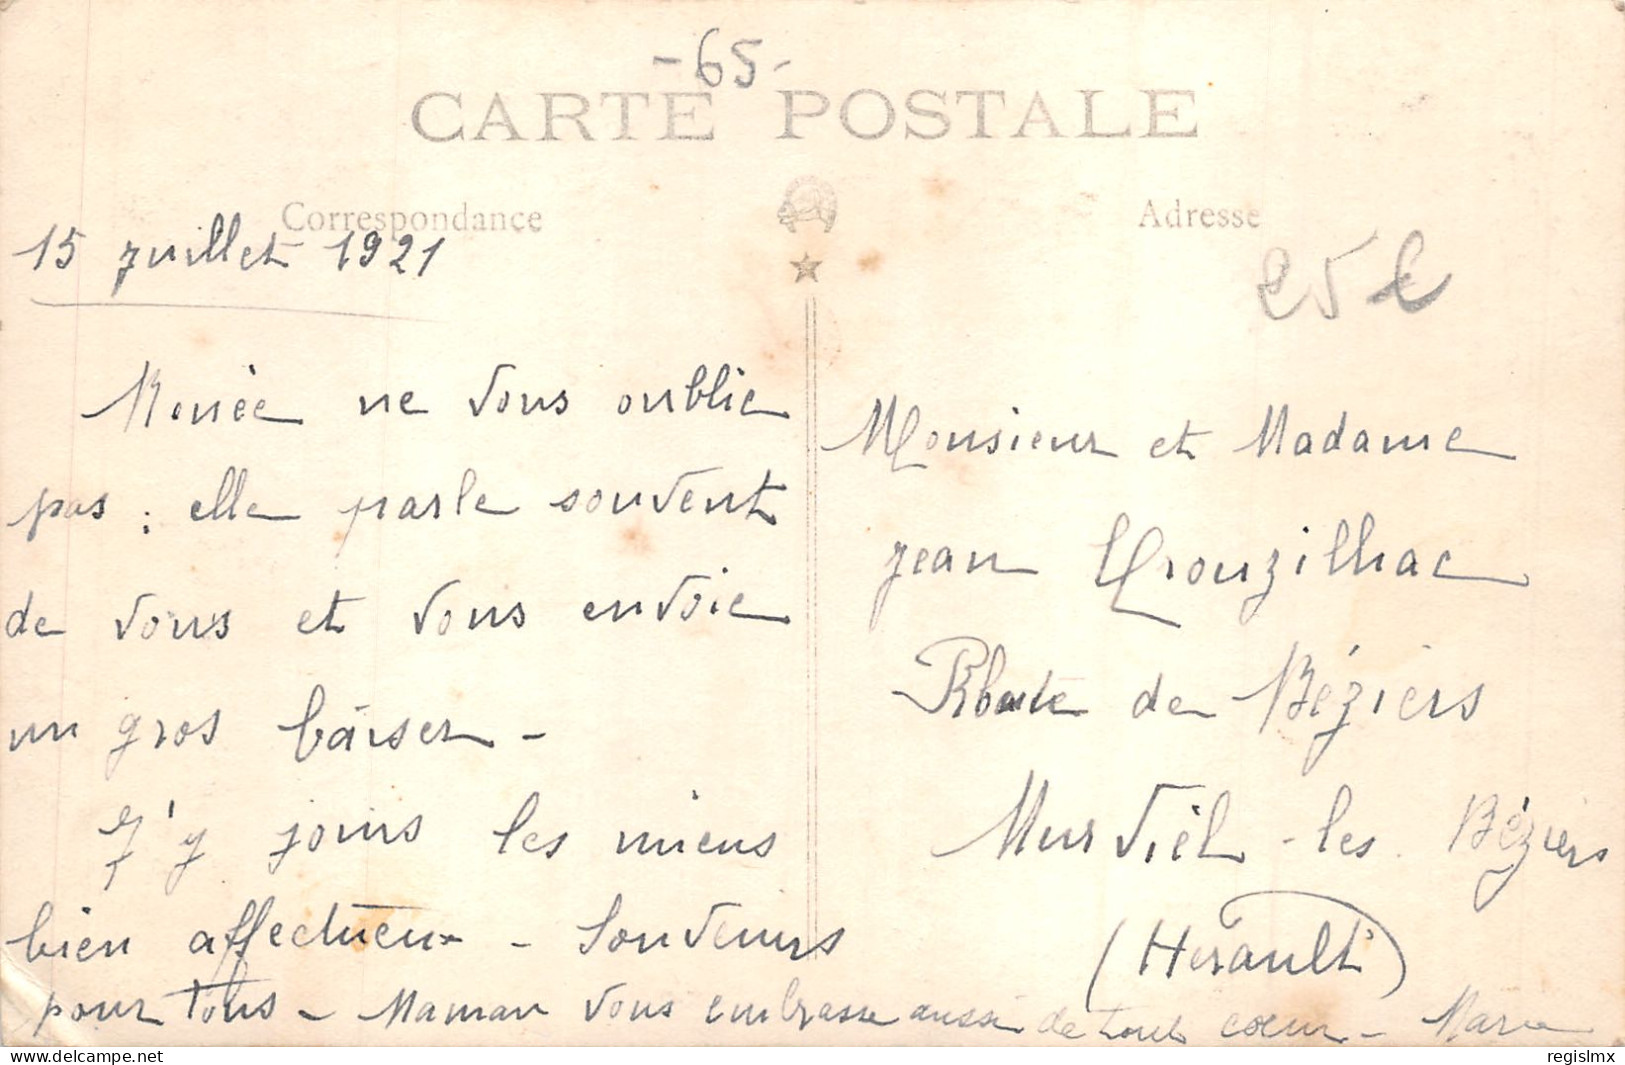 -65-
CARTE POSTALE
Correspondance
Adresse
15 juillet 1921
25 €
ne vous oublie
pas ; elle parle souvent
de vous et vous envoie
un gros baiser -
J'y joins les miens
bien affectueux - Souvenirs
pour tous - Maman vous embrasse aussi de tout coeur - Marie
Monsieur et Madame
Jean Crouzilhac
Route de Béziers
Murviel-les-Béziers
(Hérault)
regislmx